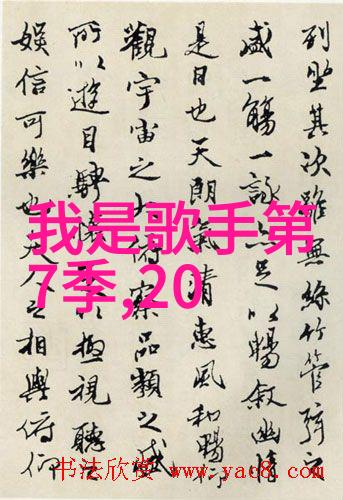 列坐其次雖無絲竹管弦之
盛一觴一詠亦足以暢敘幽情
是日也天朗氣清惠風和暢仰
觀宇宙之大俯察品類之盛
所以遊目騁懷以極視聽之
娛信可樂也夫人之相與俯仰
我是歌手第
7季,20
书法欣赏 www.yac8.com